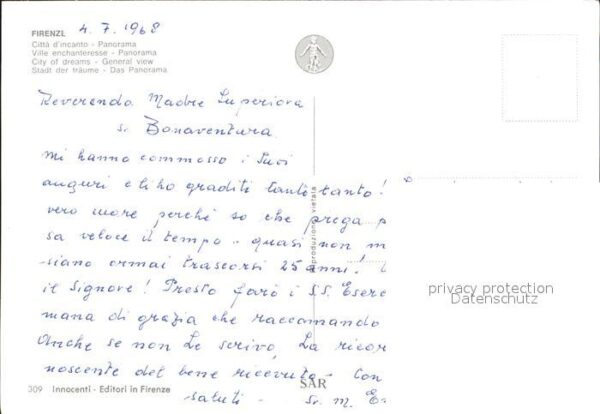 FIRENZE 4.7.1968
Città d'incanto - Panorama
Ville enchanteresse - Panorama
City of dreams - General view
Stadt der träume - Das Panorama
Reverenda Madre Superiora
Sr Bonaventura
mi hanno commosso i Suoi
auguri e li ho graditi tanto tanto!
vero more perché so che prega p
sa veloce il tempo - quasi non m
siano ormai trascorsi 25 anni!
il Signore! Presto farò i SS. Eser
mana di grazia che raccomando
Anche se non Le scrivo, La ricor
noscente del bene ricevuto - Con
saluti - Sr. M. E
riproduzione vietata
privacy protection
Datenschutz
309 Innocenti - Editori in Firenze
SAR